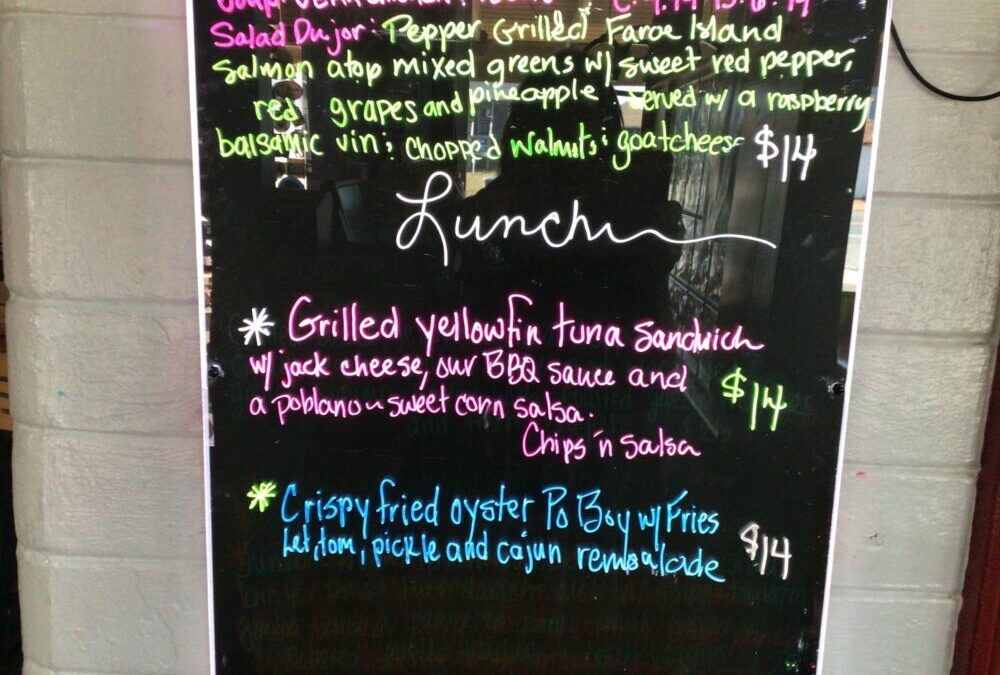 Salad Du jor: Pepper Grilled Faroe Island
Salmon atop mixed greens w/ sweet red pepper,
red grapes and pineapple. Served w/ a raspberry
balsamic vin; chopped walnuts; goatcheese $14
Lunch
* Grilled yellowfin tuna sandwich
w/ jack cheese, our BBQ sauce and
a poblano ~ sweet corn salsa. $14
Chips 'n salsa
* Crispy fried oyster Po Boy w/ Fries
Let, tom, pickle and cajun remoalade $14